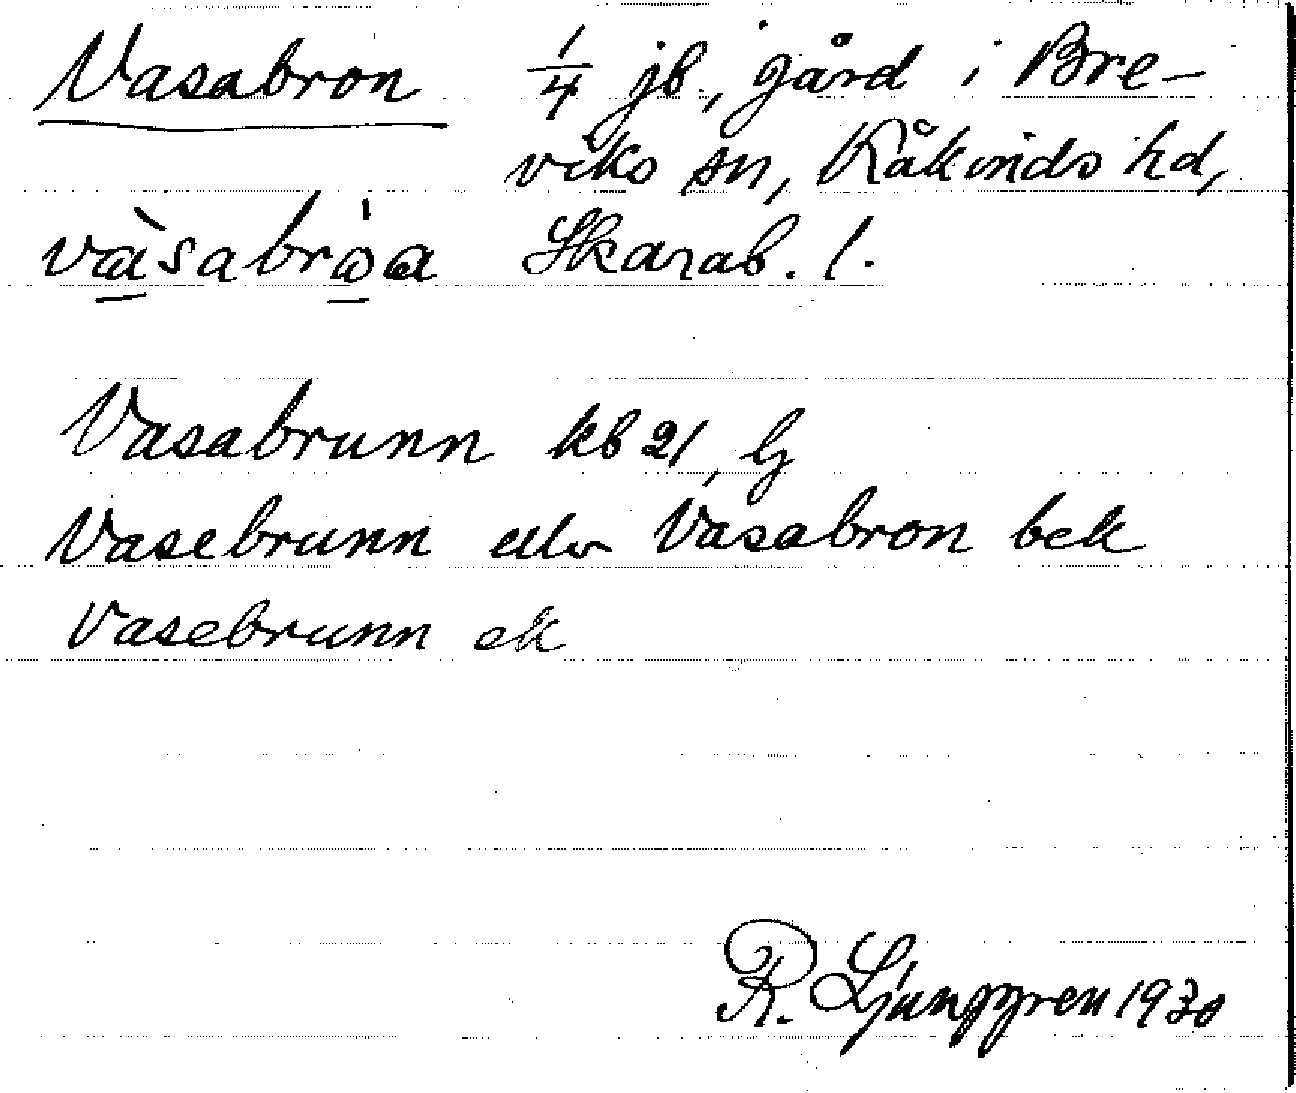 Vasabron 1/4 jb., gård i Bre-
viks sn, Kåkinds hd,
vàsabròa Skarab. l.
Vasabrunn kb 21, G
Vasebrunn eller Vasabron bek
Vasebrunn ek
R. Ljunggren 1930